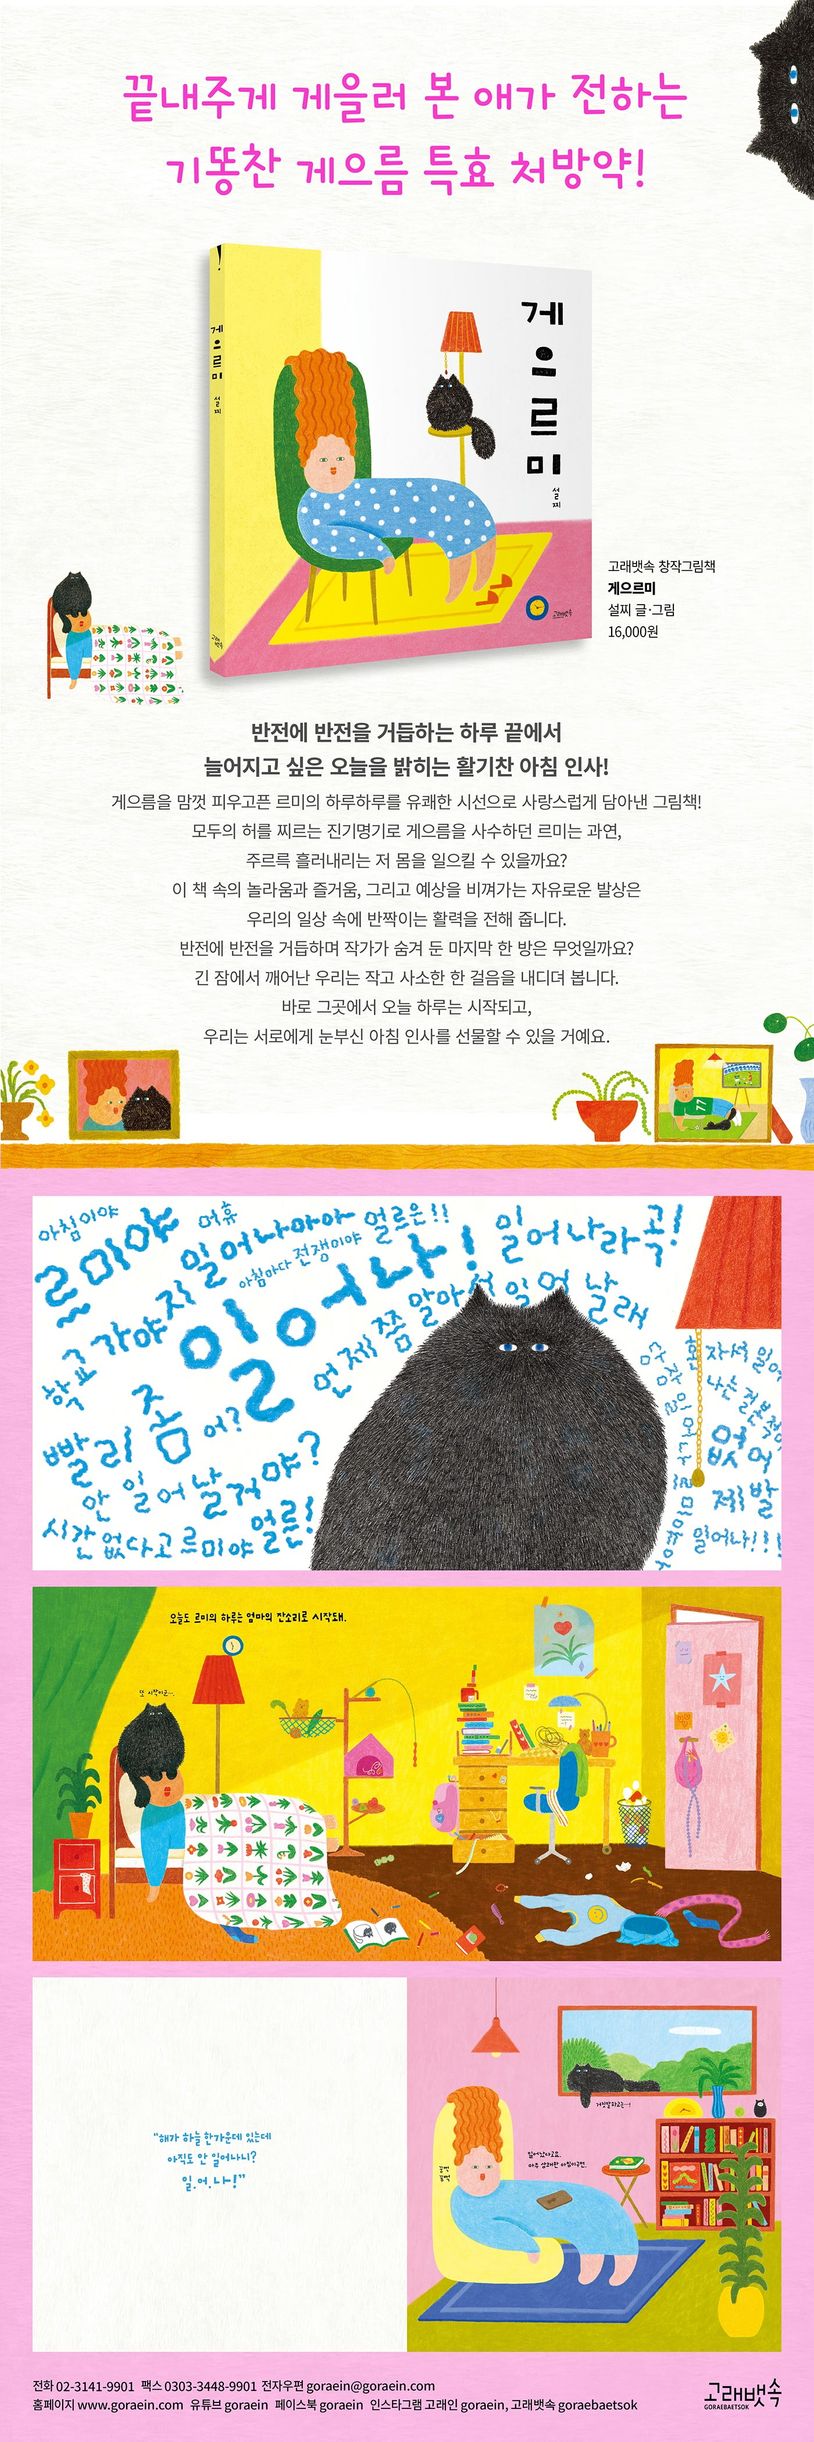 끝내주게 게을러 본 애가 전하는
기똥찬 게으름 특효 처방약!
게으르미
설찌
고래뱃속
게
으
르
미
설찌
고래뱃속
고래뱃속 창작그림책
게으르미
설찌 글·그림
16,000원
반전에 반전을 거듭하는 하루 끝에서
늘어지고 싶은 오늘을 밝히는 활기찬 아침 인사!
게으름을 맘껏 피우고픈 르미의 하루하루를 유쾌한 시선으로 사랑스럽게 담아낸 그림책!
모두의 허를 찌르는 진기명기로 게으름을 사수하던 르미는 과연,
주르륵 흘러내리는 저 몸을 일으킬 수 있을까요?
이 책 속의 놀라움과 즐거움, 그리고 예상을 비껴가는 자유로운 발상은
우리의 일상 속에 반짝이는 활력을 전해 줍니다.
반전에 반전을 거듭하며 작가가 숨겨 둔 마지막 한 방은 무엇일까요?
긴 잠에서 깨어난 우리는 작고 사소한 한 걸음을 내디뎌 봅니다.
바로 그곳에서 오늘 하루는 시작되고,
우리는 서로에게 눈부신 아침 인사를 선물할 수 있을 거예요.
77
아침이야
르미야
어휴
일어나아아
얼르은!!
아침마다 전쟁이야
일어나라 곡!
학교 가야지
일어나!
언제쯤 알아서 일어날래
빨리 좀
어?
안 일어날거야?
시간 없다고 르미야 얼른!
없어
제발
일어나!!!
오늘도 르미의 하루는 엄마의 잔소리로 시작돼.
또 시작이군….
"해가 하늘 한가운데 있는데
아직도 안 일어나니?
일.어.나!"
거짓말하고는…!
일어났다고요.
아주 상쾌한 아침이구먼.
꿈벅
꿈벅
전화 02-3141-9901 팩스 0303-3448-9901 전자우편 goraein@goraein.com
홈페이지 www.goraein.com 유튜브 goraein 페이스북 goraein 인스타그램 고래인 goraein, 고래뱃속 goraebaetsok
고래뱃속
GORAEBAETSOK